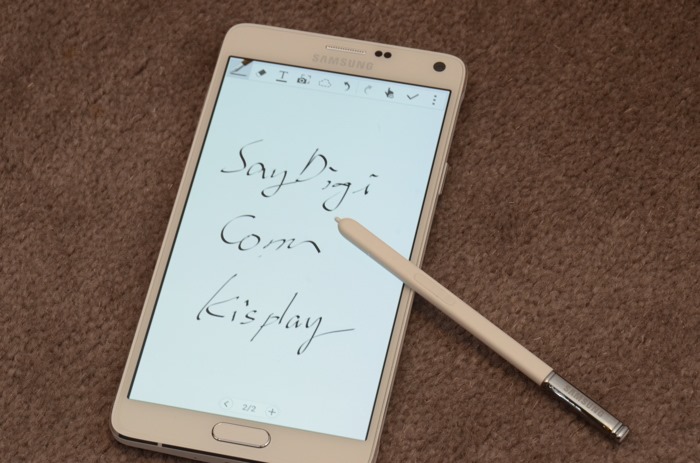 SAMSUNG
T
SayDigi
Com
Kisplay
2/2